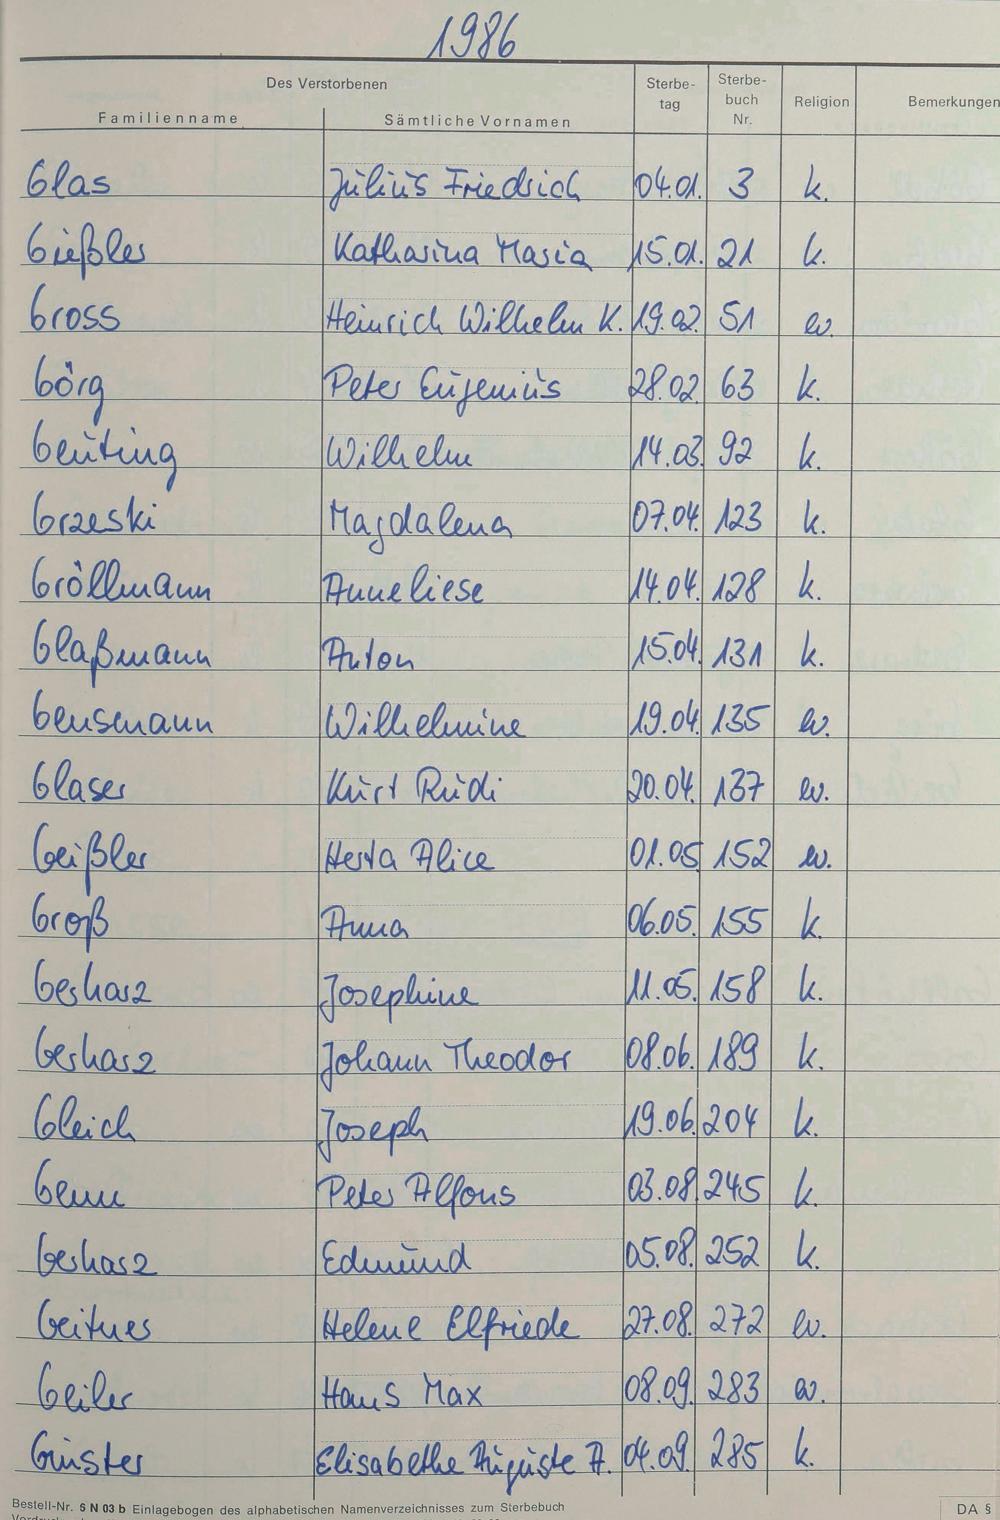 1986
Des Verstorbenen
Familienname Sämtliche Vornamen Sterbe-tag Sterbe-buch Nr. Religion Bemerkungen
Glas Julius Friedrich 04.01. 3 k.
Gießler Katharina Maria 15.01. 21 k.
Gross Heinrich Wilhelm K. 19.02. 51 ev.
Görg Peter Eugenius 28.02. 63 k.
Geuting Wilhelm 14.03. 92 k.
Grzeski Magdalena 07.04. 123 k.
Gröllmann Anneliese 14.04. 128 k.
Glaßmann Anton 15.04. 131 k.
Gensmann Wilhelmine 19.04. 135 ev.
Glaser Kurt Rudi 20.04. 137 ev.
Geißler Herta Alice 01.05 152 ev.
Groß Anna 06.05. 155 k.
Gerharz Josephine 11.05. 158 k.
Gerharz Johann Theodor 08.06. 189 k.
Gleich Joseph 19.06. 204 k.
Genn Peter Alfons 03.08. 245 k.
Gerharz Edmund 05.08. 252 k.
Geitner Helene Elfriede 27.08. 272 ev.
Geiler Hans Max 08.09. 283 ev.
Günster Elisabethe Auguste A. 04.09. 285 k.
Bestell-Nr. 6 N 03 b Einlagebogen des alphabetischen Namenverzeichnisses zum Sterbebuch
DA §